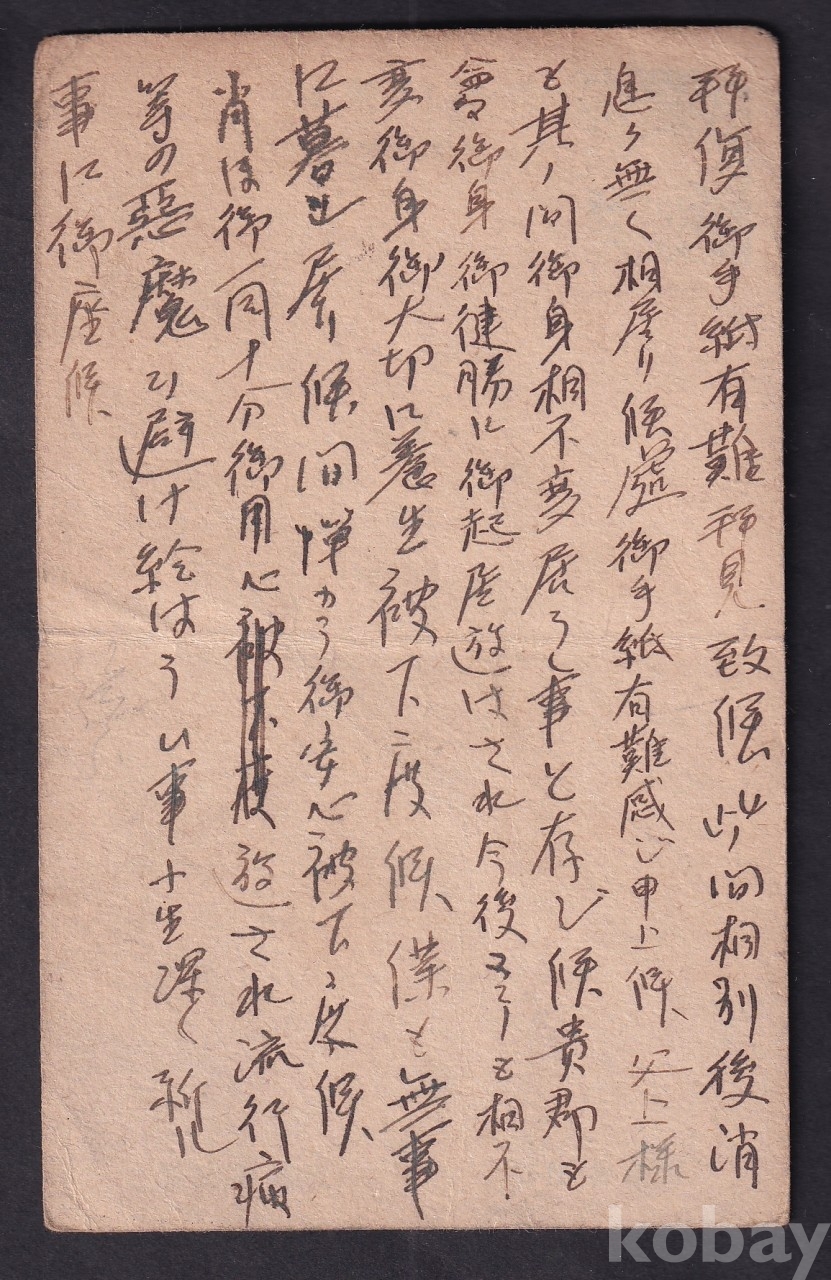 拝復御手紙有難拝見致候此間相別後消
息も無く相居り候處御手紙有難感じ申上候、父上様
も其ノ間御身相不変居らし事と存じ候貴郡も
御身御健勝に御起居遊はされ今後とも相不
変御身御大切に養生被下度候、僕も無事
に暮し居り候間憚から御安心被下度候、
尚ほ御一同十分御用心被下度遊され流行病
等の悪魔ひ避け給はらし事小生深く祈し
事に御座候、
kobay